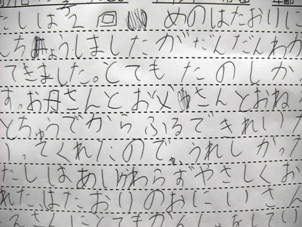 たしは、2回めのはたおりに
ちょうしましたが、だんだんわか
てきました。とてもたのしか
す。お母さんとお父さんとおね
とちゅうでからふるできれい
。てくれたので、うれしかっ
たしはあいかわらずやさしくお
れたはたおりのおにいさん